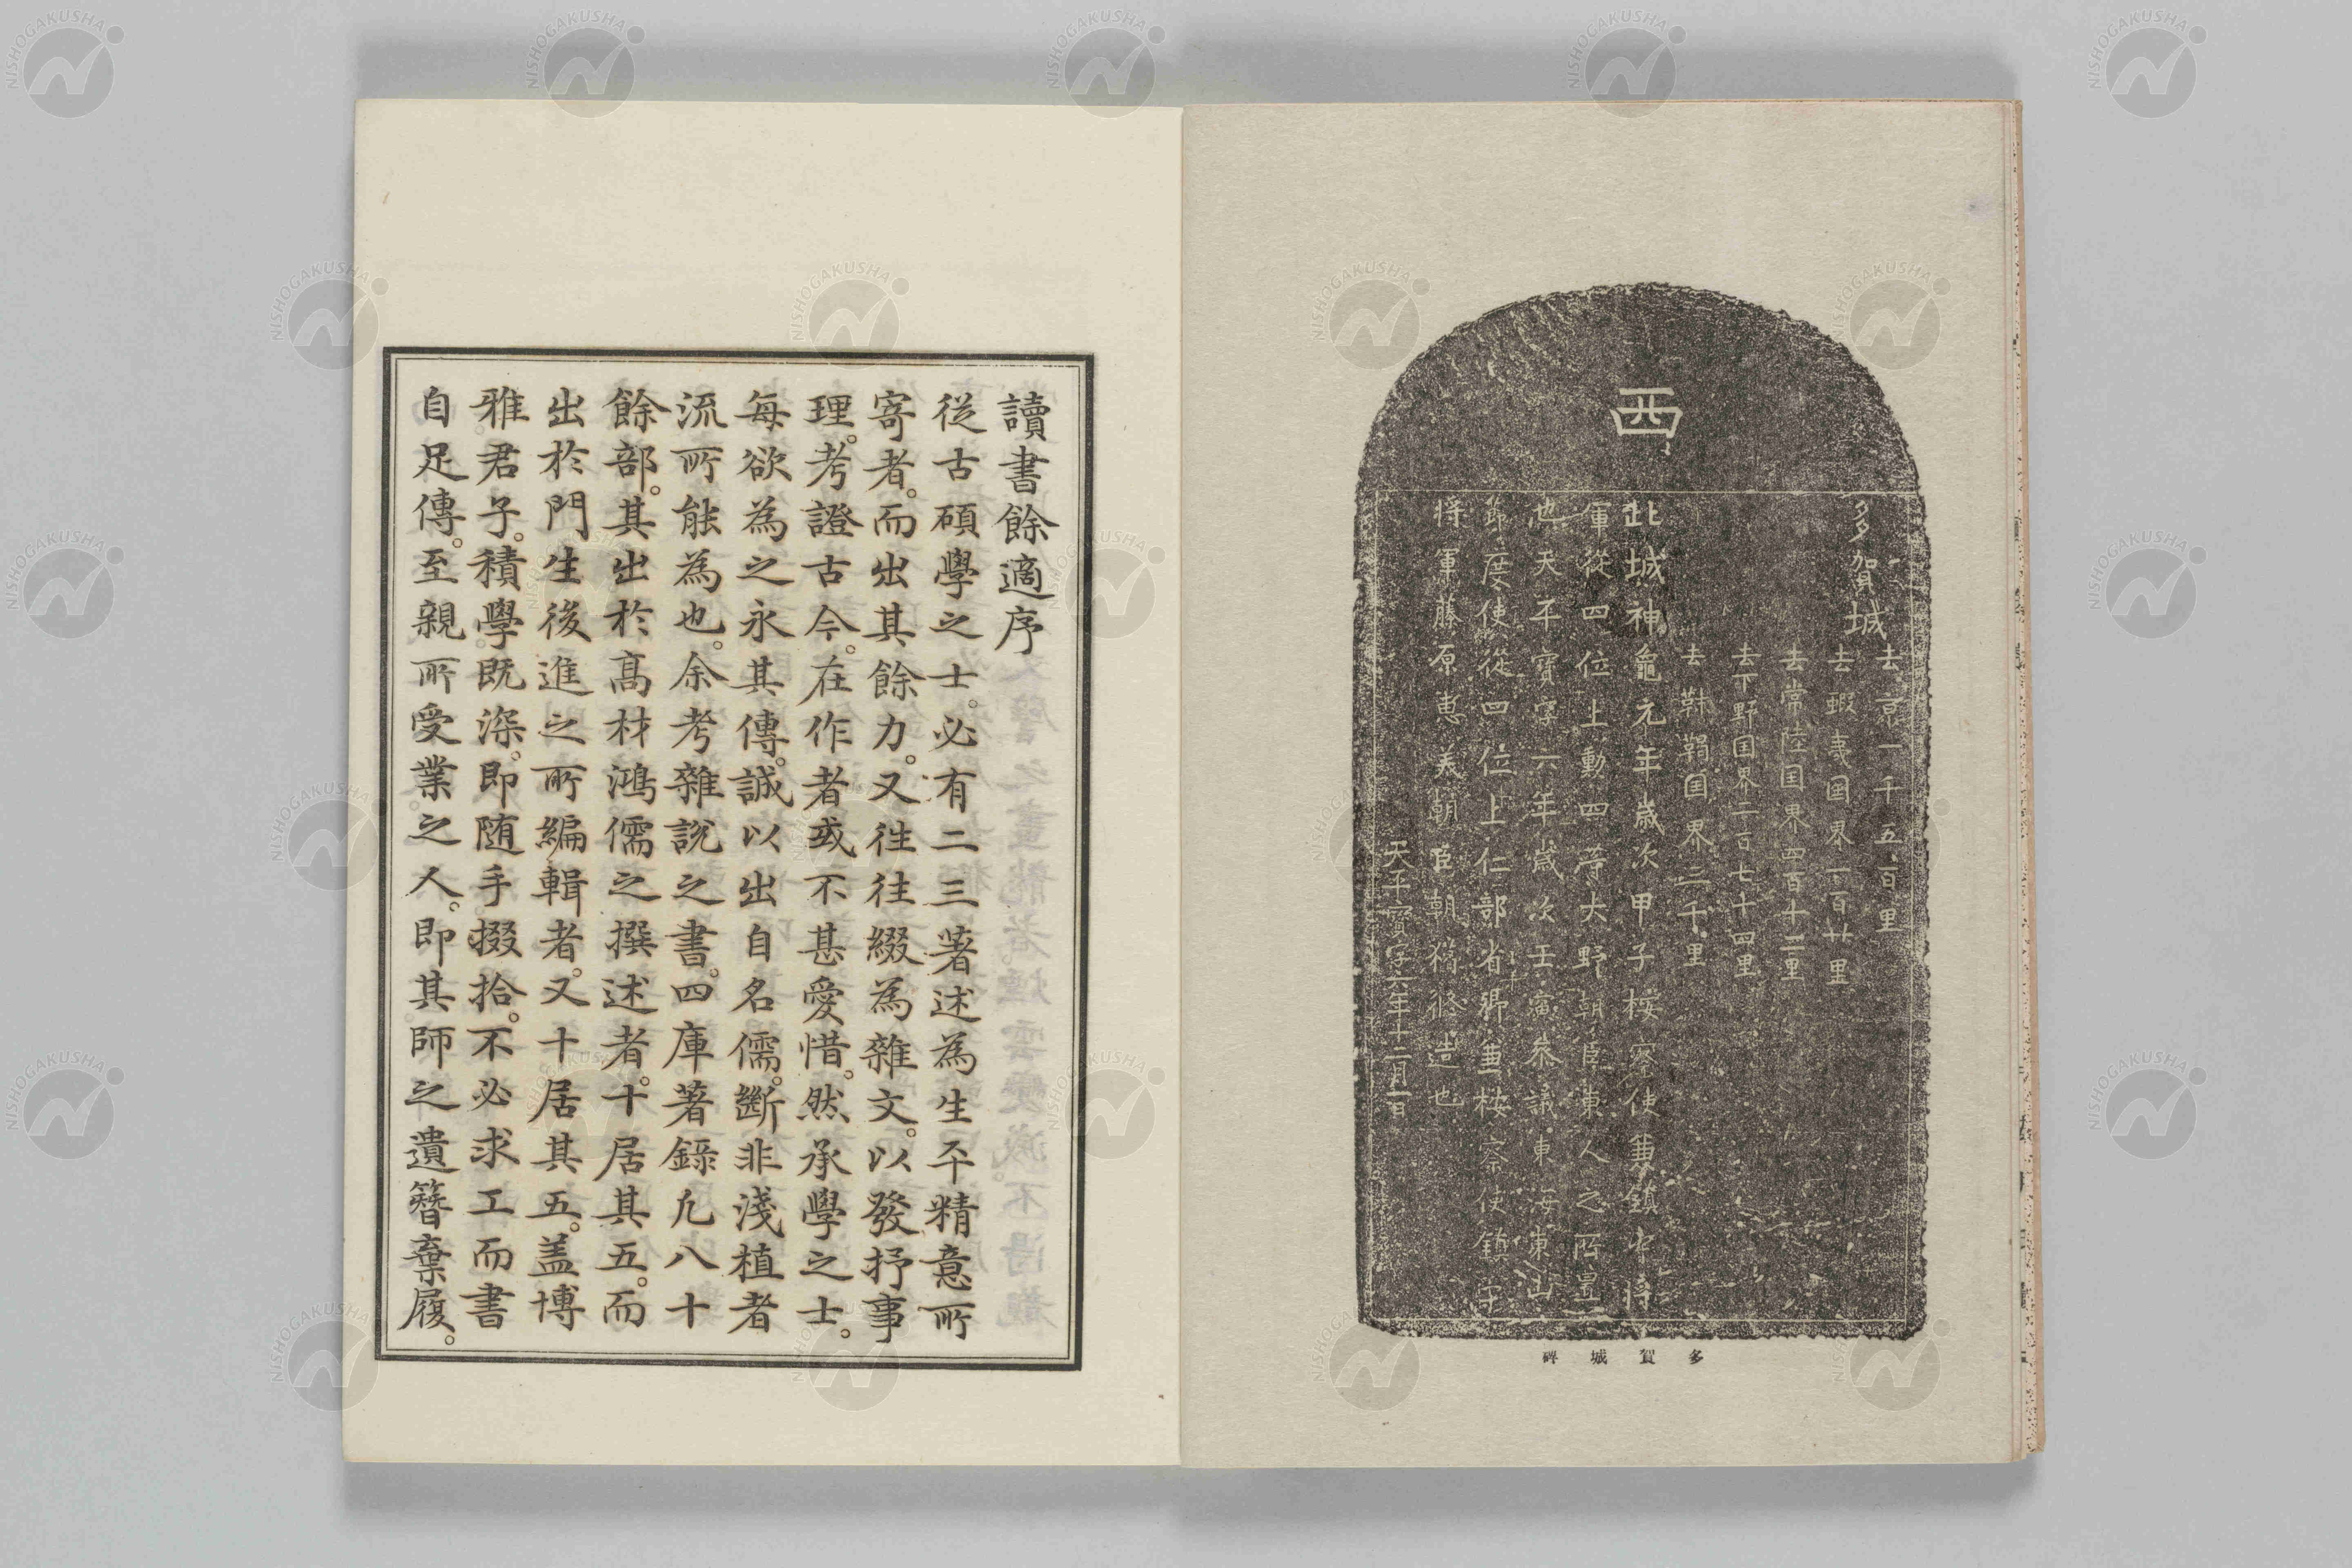 西
多賀城
去京一千五百里
去蝦夷国界一百廿里
去常陸国界四百十二里
去下野国界二百七十四里
去靺鞨国界三千里
此城神龜元年歳次甲子桉察使兼鎮守將
軍從四位上勳四等大野朝臣東人之所置
也天平寶字六年歳次壬寅参議東海東山
節度使從四位上仁部省卿兼桉察使鎮守
將軍藤原惠美朝臣朝獦修造也
天平寶字六年十二月一日
多賀城碑
讀書餘適序
從古碩學之士。必有二三著述為生平精意所
寄者。而出其餘力。又往往綴為雜文。以發抒事
理。考證古今。在作者或不甚愛惜。然承學之士。
每欲為之永其傳。誠以出自名儒。斷非淺植者
流所能為也。余考雜說之書。四庫著錄凡八十
餘部。其出於高材鴻儒之撰述者。十居其五。而
出於門生後進之所編輯者。又十居其五。盖博
雅君子。積學既深。即随手掇拾。不必求工而書
自足傳。至親所受業之人。即其師之遺簪棄履。
NISHOGAKUSHA